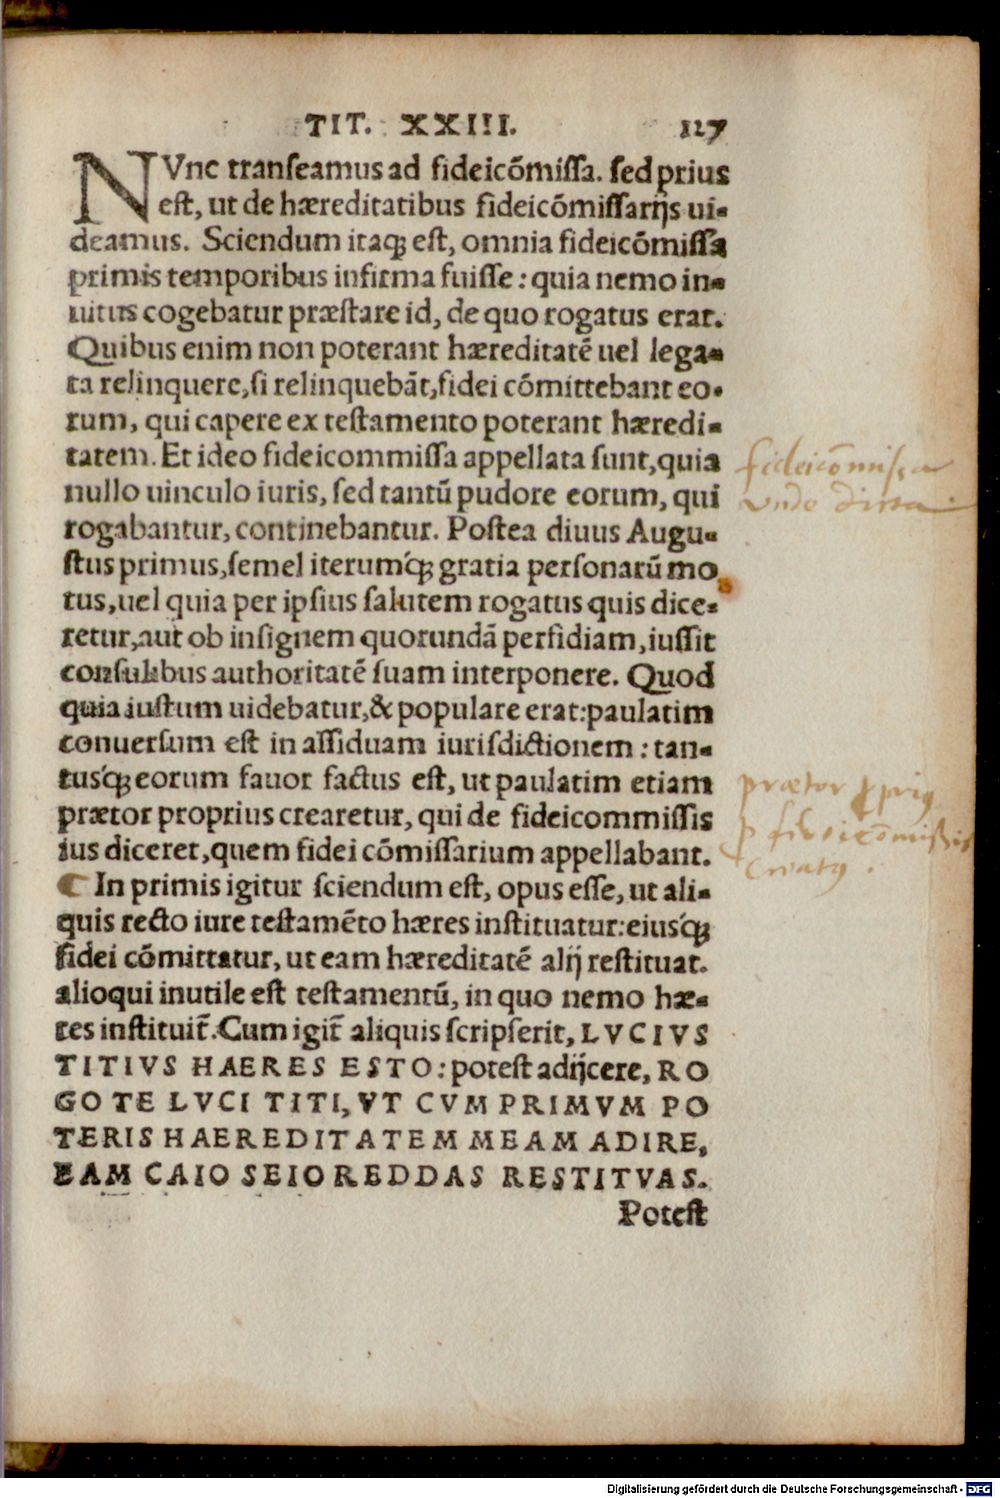 TIT. XXIII. 127
NVnc transeamus ad fideicõmissa. sed prius
est, ut de hæreditatibus fideicõmissarijs ui-
deamus. Sciendum itaq; est, omnia fideicõmissa
primis temporibus infirma fuisse: quia nemo in-
uitus cogebatur præstare id, de quo rogatus erat.
Quibus enim non poterant hæreditatẽ uel lega-
ta relinquere, si relinquebãt, fidei cõmittebant eo-
rum, qui capere ex testamento poterant hæredi-
tatem. Et ideo fideicommissa appellata sunt, quia
nullo uinculo iuris, sed tantũ pudore eorum, qui
rogabantur, continebantur. Postea diuus Augu-
stus primus, semel iterumq́; gratia personarũ mo
tus, uel quia per ipsius salutem rogatus quis dice-
retur, aut ob insignem quorundã perfidiam, iussit
consulibus authoritatẽ suam interponere. Quod
quia iustum uidebatur, & populare erat: paulatim
conuersum est in assiduam iurisdictionem: tan-
tusq́; eorum fauor factus est, ut paulatim etiam
prætor proprius crearetur, qui de fideicommissis
ius diceret, quem fidei cõmissarium appellabant.
¶ In primis igitur sciendum est, opus esse, ut ali-
quis recto iure testamẽto hæres instituatur: eiusq́;
fidei cõmittatur, ut eam hæreditatẽ alij restituat.
alioqui inutile est testamentũ, in quo nemo hæ-
res instituit̃. Cum igit̃ aliquis scripserit, LVCIVS
TITIVS HAERES ESTO: potest adijcere, RO
GO TE LVCI TITI, VT CVM PRIMVM PO
TERIS HAEREDITATEM MEAM ADIRE,
EAM CAIO SEIO REDDAS RESTITVAS.
Potest
fideicõmissa
unde dicta
prætor ꝓpriꝯ
ꝓ fideicõmissis
creatꝯ.
Digitalisierung gefördert durch die Deutsche Forschungsgemeinschaft - DFG